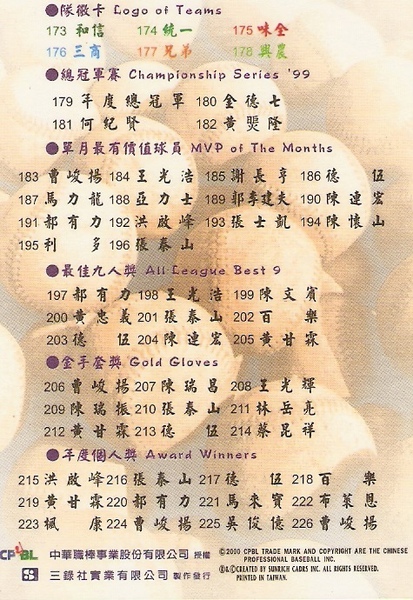 ●隊徽卡 Logo of Teams
173 和信 174 統一 175 味全
176 三商 177 兄弟 178 興農
●總冠軍賽 Championship Series '99
179 年度總冠軍 180 金德七
181 何紀賢 182 黃煚隆
●單月最有價值球員 MVP of The Months
183 曹峻揚 184 王光浩 185 謝長亨 186 德 伍
187 馬力龍 188 亞力士 189 郭李建夫 190 陳連宏
191 郝有力 192 洪啟峰 193 張士凱 194 陳懷山
195 利 多 196 張泰山
●最佳九人獎 All League Best 9
197 郝有力 198 王光浩 199 陳文賓
200 黃忠義 201 張泰山 202 百 樂
203 德 伍 204 陳連宏 205 黃甘霖
●金手套獎 Gold Gloves
206 曹峻揚 207 陳瑞昌 208 王光輝
209 陳瑞振 210 張泰山 211 林岳亮
212 黃甘霖 213 德 伍 214 蔡昆祥
●年度個人獎 Award Winners
215 洪啟峰 216 張泰山 217 德 伍 218 百 樂
219 黃甘霖 220 郝有力 221 馬來寶 222 布萊恩
223 楓 康 224 曹峻揚 225 吳俊億 226 曹峻揚
CPBL 中華職棒事業股份有限公司 授權
三錄社實業有限公司 製作發行
©2000 CPBL TRADE MARK AND COPYRIGHT ARE THE CHINESE
PROFESSIONAL BASEBALL INC.
®&©CREATED BY SUNRICH CADRS INC. ALL RIGHTS RESERVED.
PRINTED IN TAIWAN.